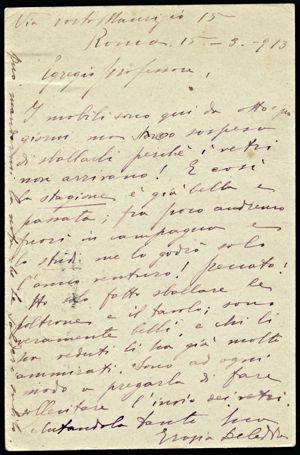 Via Porto Maurizio 15
Roma, 15 - 3 - 913
Egregio professore,
I mobili sono qui da otto
giorni ma sono sospesa
di sballarli perchè i vetri
non arrivano! E così
la stagione è già bella e
passata; fra poco andremo
fuori in campagna e
lo studio me lo godrò solo
l'anno venturo! peccato!
Ho solo fatto sballare le
poltrone e il tavolo; sono
veramente belli e chi li
ha veduti li ha già molto
ammirati. Sono ad ogni
modo a pregarla di fare
sollecitare l'invio dei vetri.
Salutandola tanto sua
Grazia Deledda